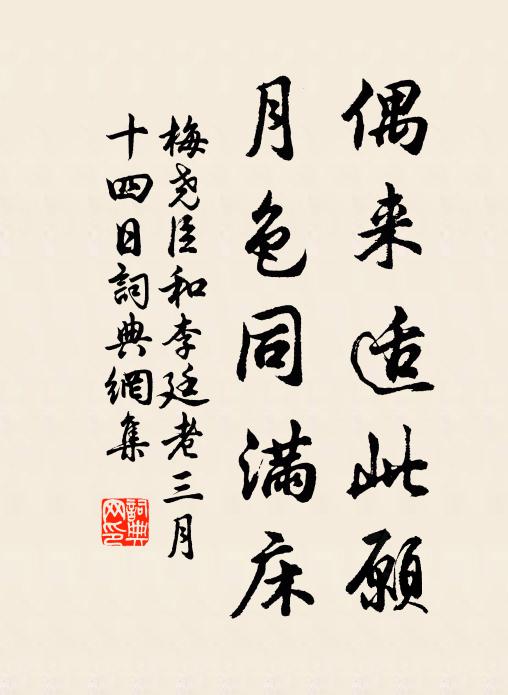 偶来适此願
月色同满床
梅尧臣和李廷老三月
十四日詞典網集
詞典网印